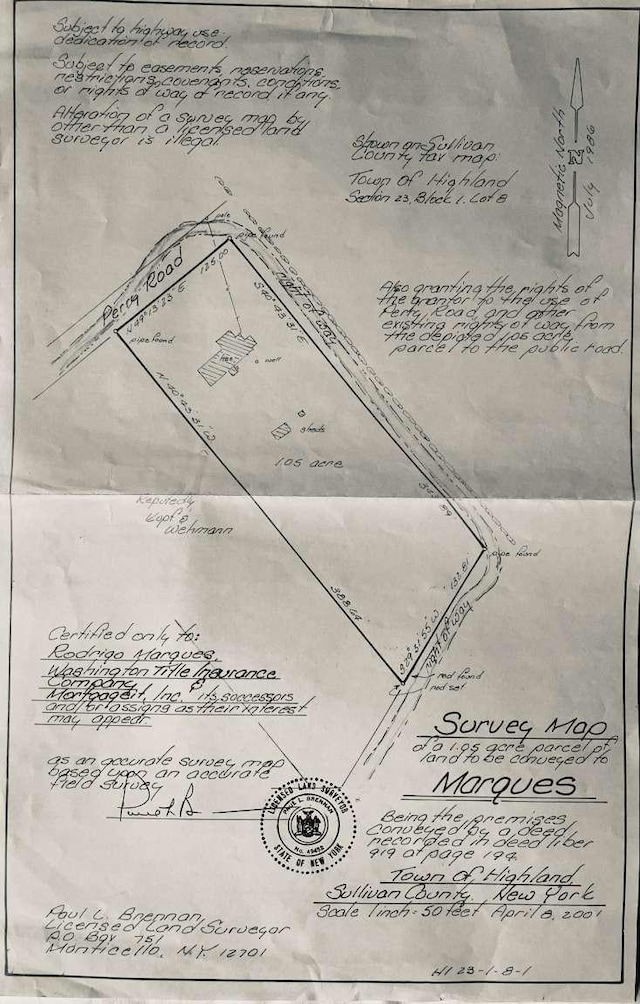 Subject to highway use
dedication of record.
Subject to easements, reservations,
restrictions, covenants, conditions,
or rights of way of record if any.
Alteration of a survey map by
other than a licensed land
surveyor is illegal.
Shown on Sullivan
County tax map:
Town of Highland
Section 23, Block 1, Lot 8
Magnetic North
July 1986
Also granting the rights of
the grantor to the use of
Perry Road, and other
existing rights of way from
the depicted 1.05 acre
parcel to the public road.
pole
pipe found
Perry Road
125.00
N 49° 13' 23" E
Right of Way
S 40° 43' 31" E
pipe found
well
N 40° 43' 31" W
sheds
1.05 acre
Reputedly
Kopf &
Wehmann
pipe found
388.64
132.81
right of way
rod found
rod set
Certified only to:
Rodrigo Marques,
Washington Title Insurance
Company &
MortgageIt, Inc. its successors
and/or assigns as their interest
may appear.
as an accurate survey map
based upon an accurate
field survey
LICENSED LAND SURVEYOR
PAUL L. BRENNAN
No. 49452
STATE OF NEW YORK
Survey Map
of a 1.05 acre parcel of
land to be conveyed to
Marques
Being the premises
conveyed by a deed
recorded in deed liber
919 at page 194
Town of Highland
Sullivan County, New York
Scale 1 inch = 50 feet April 8, 2001
Paul L. Brennan
Licensed Land Surveyor
P.O. Box 751
Monticello, N.Y. 12701
HI 23-1-8-1